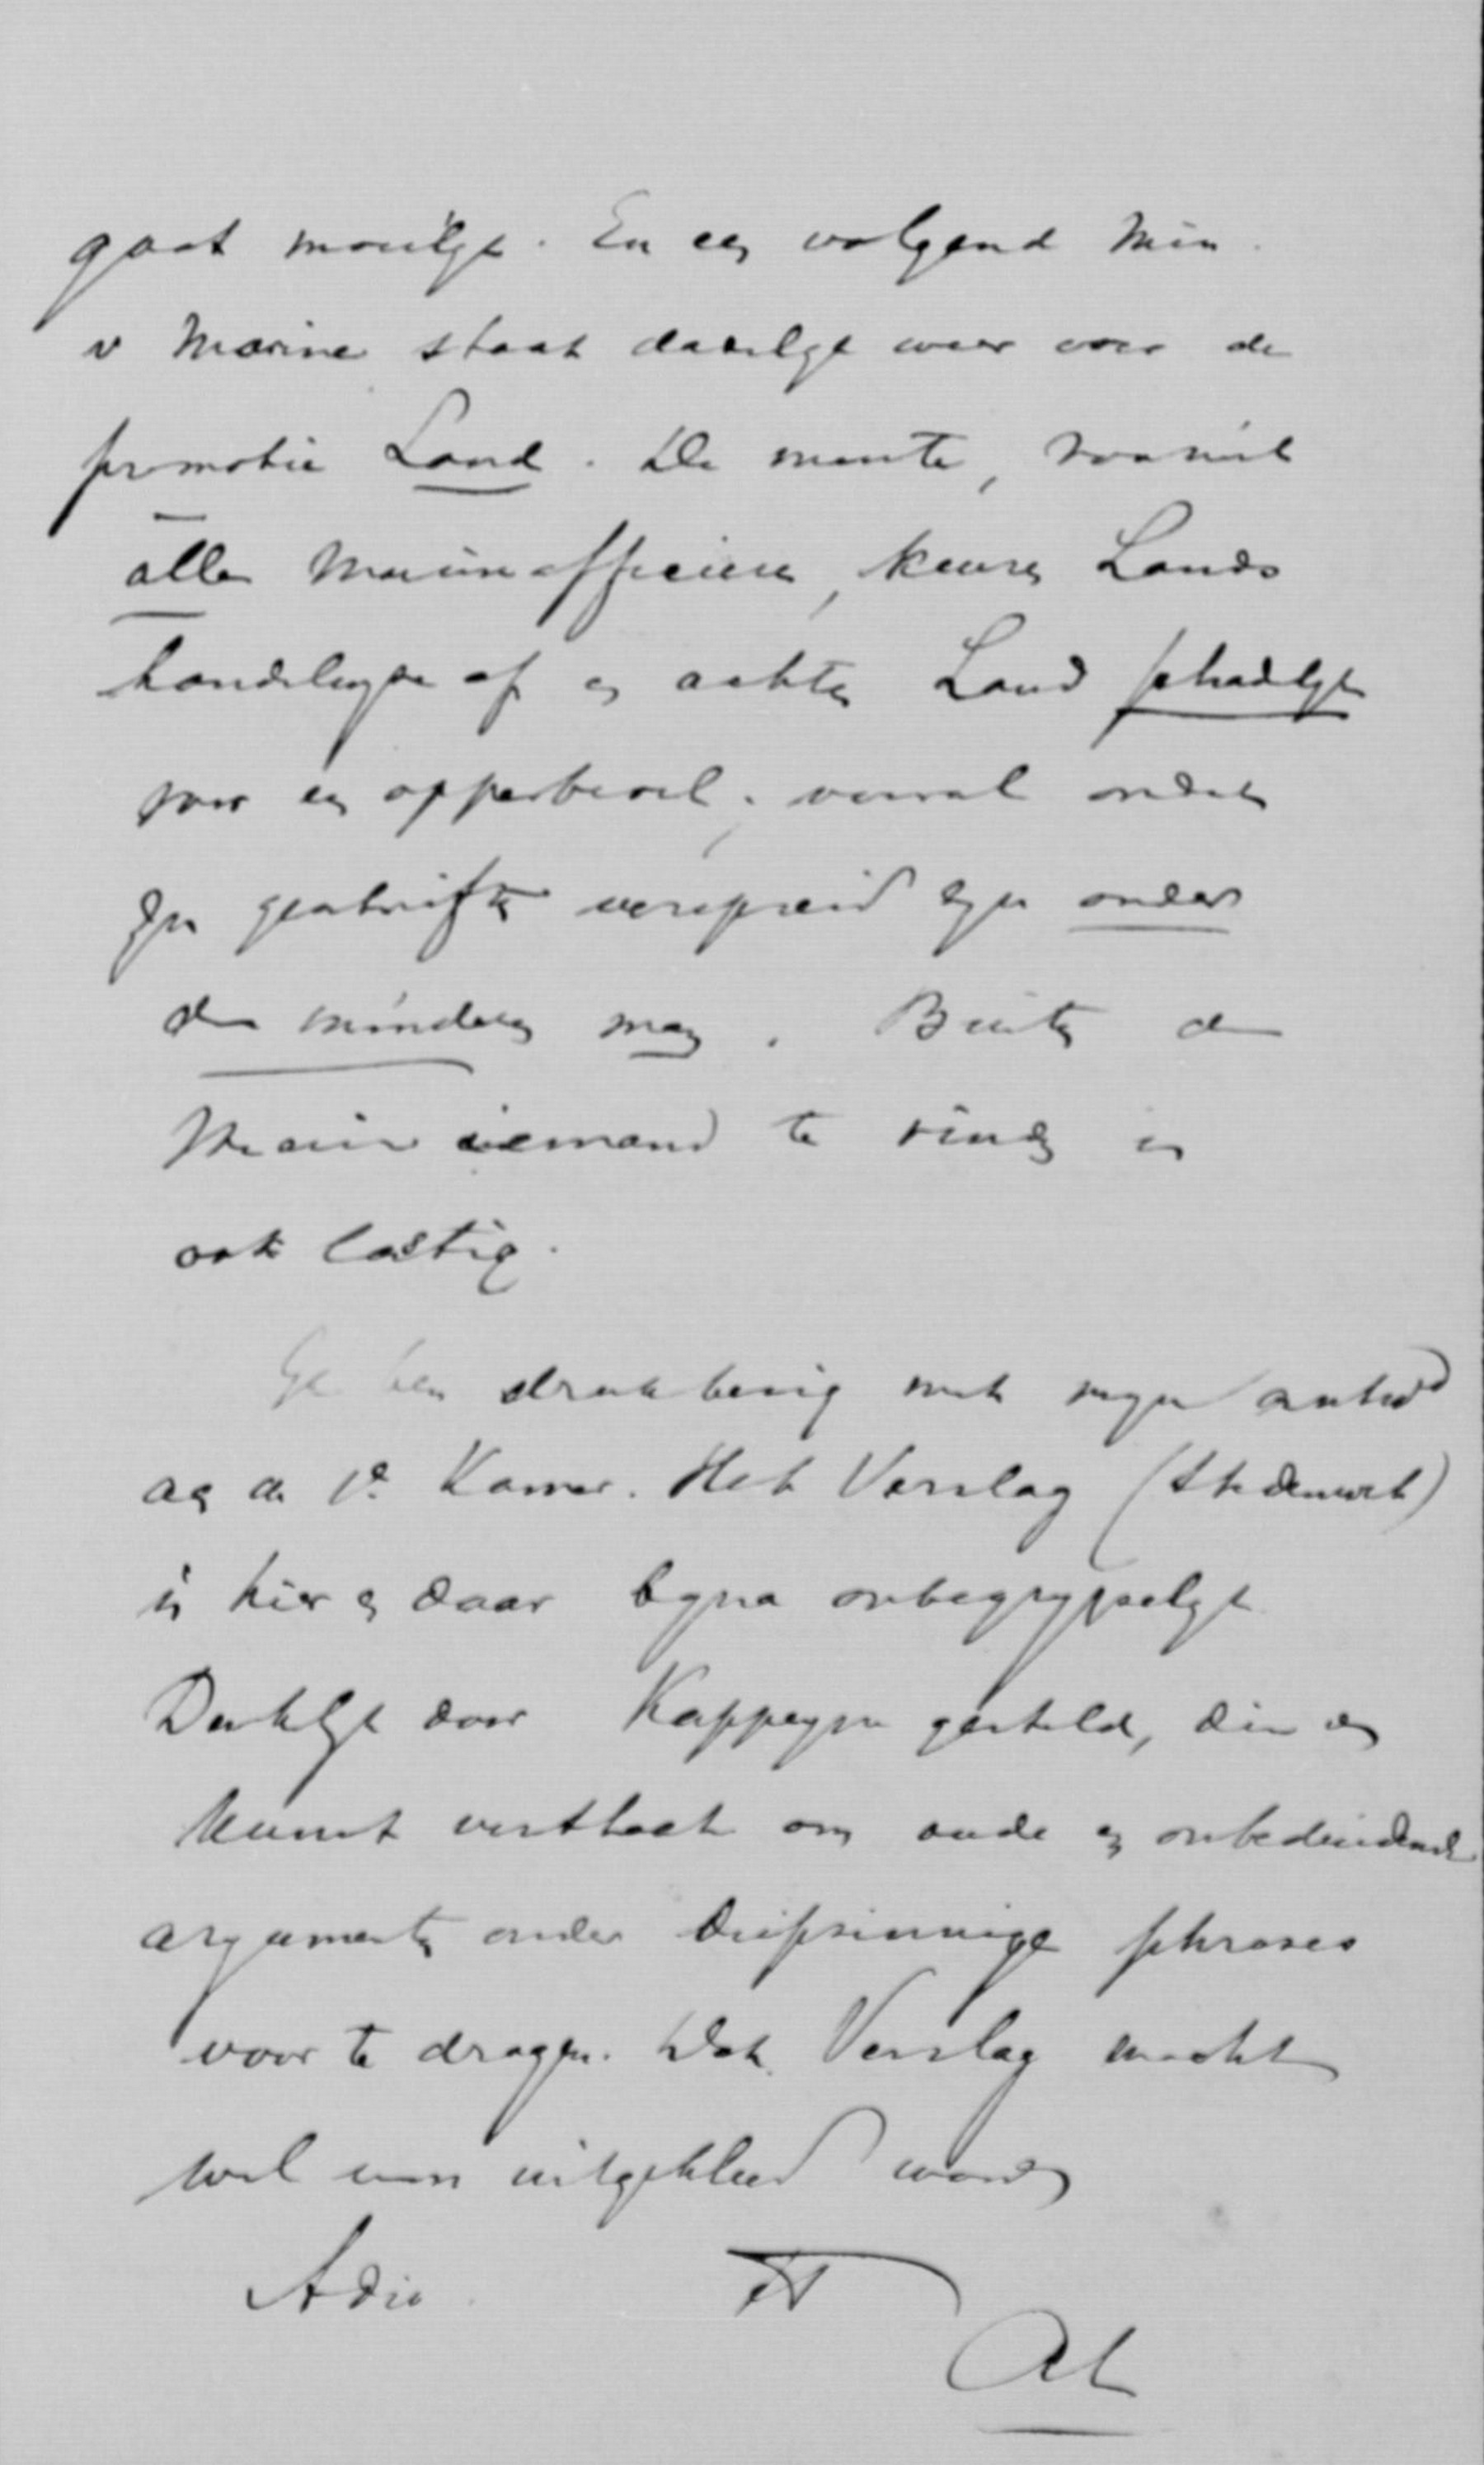 gaat moeilyk. En een volgend Min.
v Marine staat dadelyk weer voor de
promotie Land. De meeste, zoo niet
alle Marineofficieren, keuren Lands
handelingen af en achten Land schadelyk
voor een opperbevel; vooral omdat
zyn geschriften verspreid zyn onder
de minderen. Buiten de
Marine iemand te vinden is
ook lastig.
Ik ben druk bezig met myn antwd
aan de 1e Kamer. Het Verslag (stedenwet)
is hier en daar byna onbegrypelyk
Denkelyk door Kappeyne gesteld, die de
kunst verstaat om oude en onbeduidende
argumenten onder diepzinnige phrases
voor te dragen. Dat Verslag mocht
wel eens uitgekleed worden
Adio tt